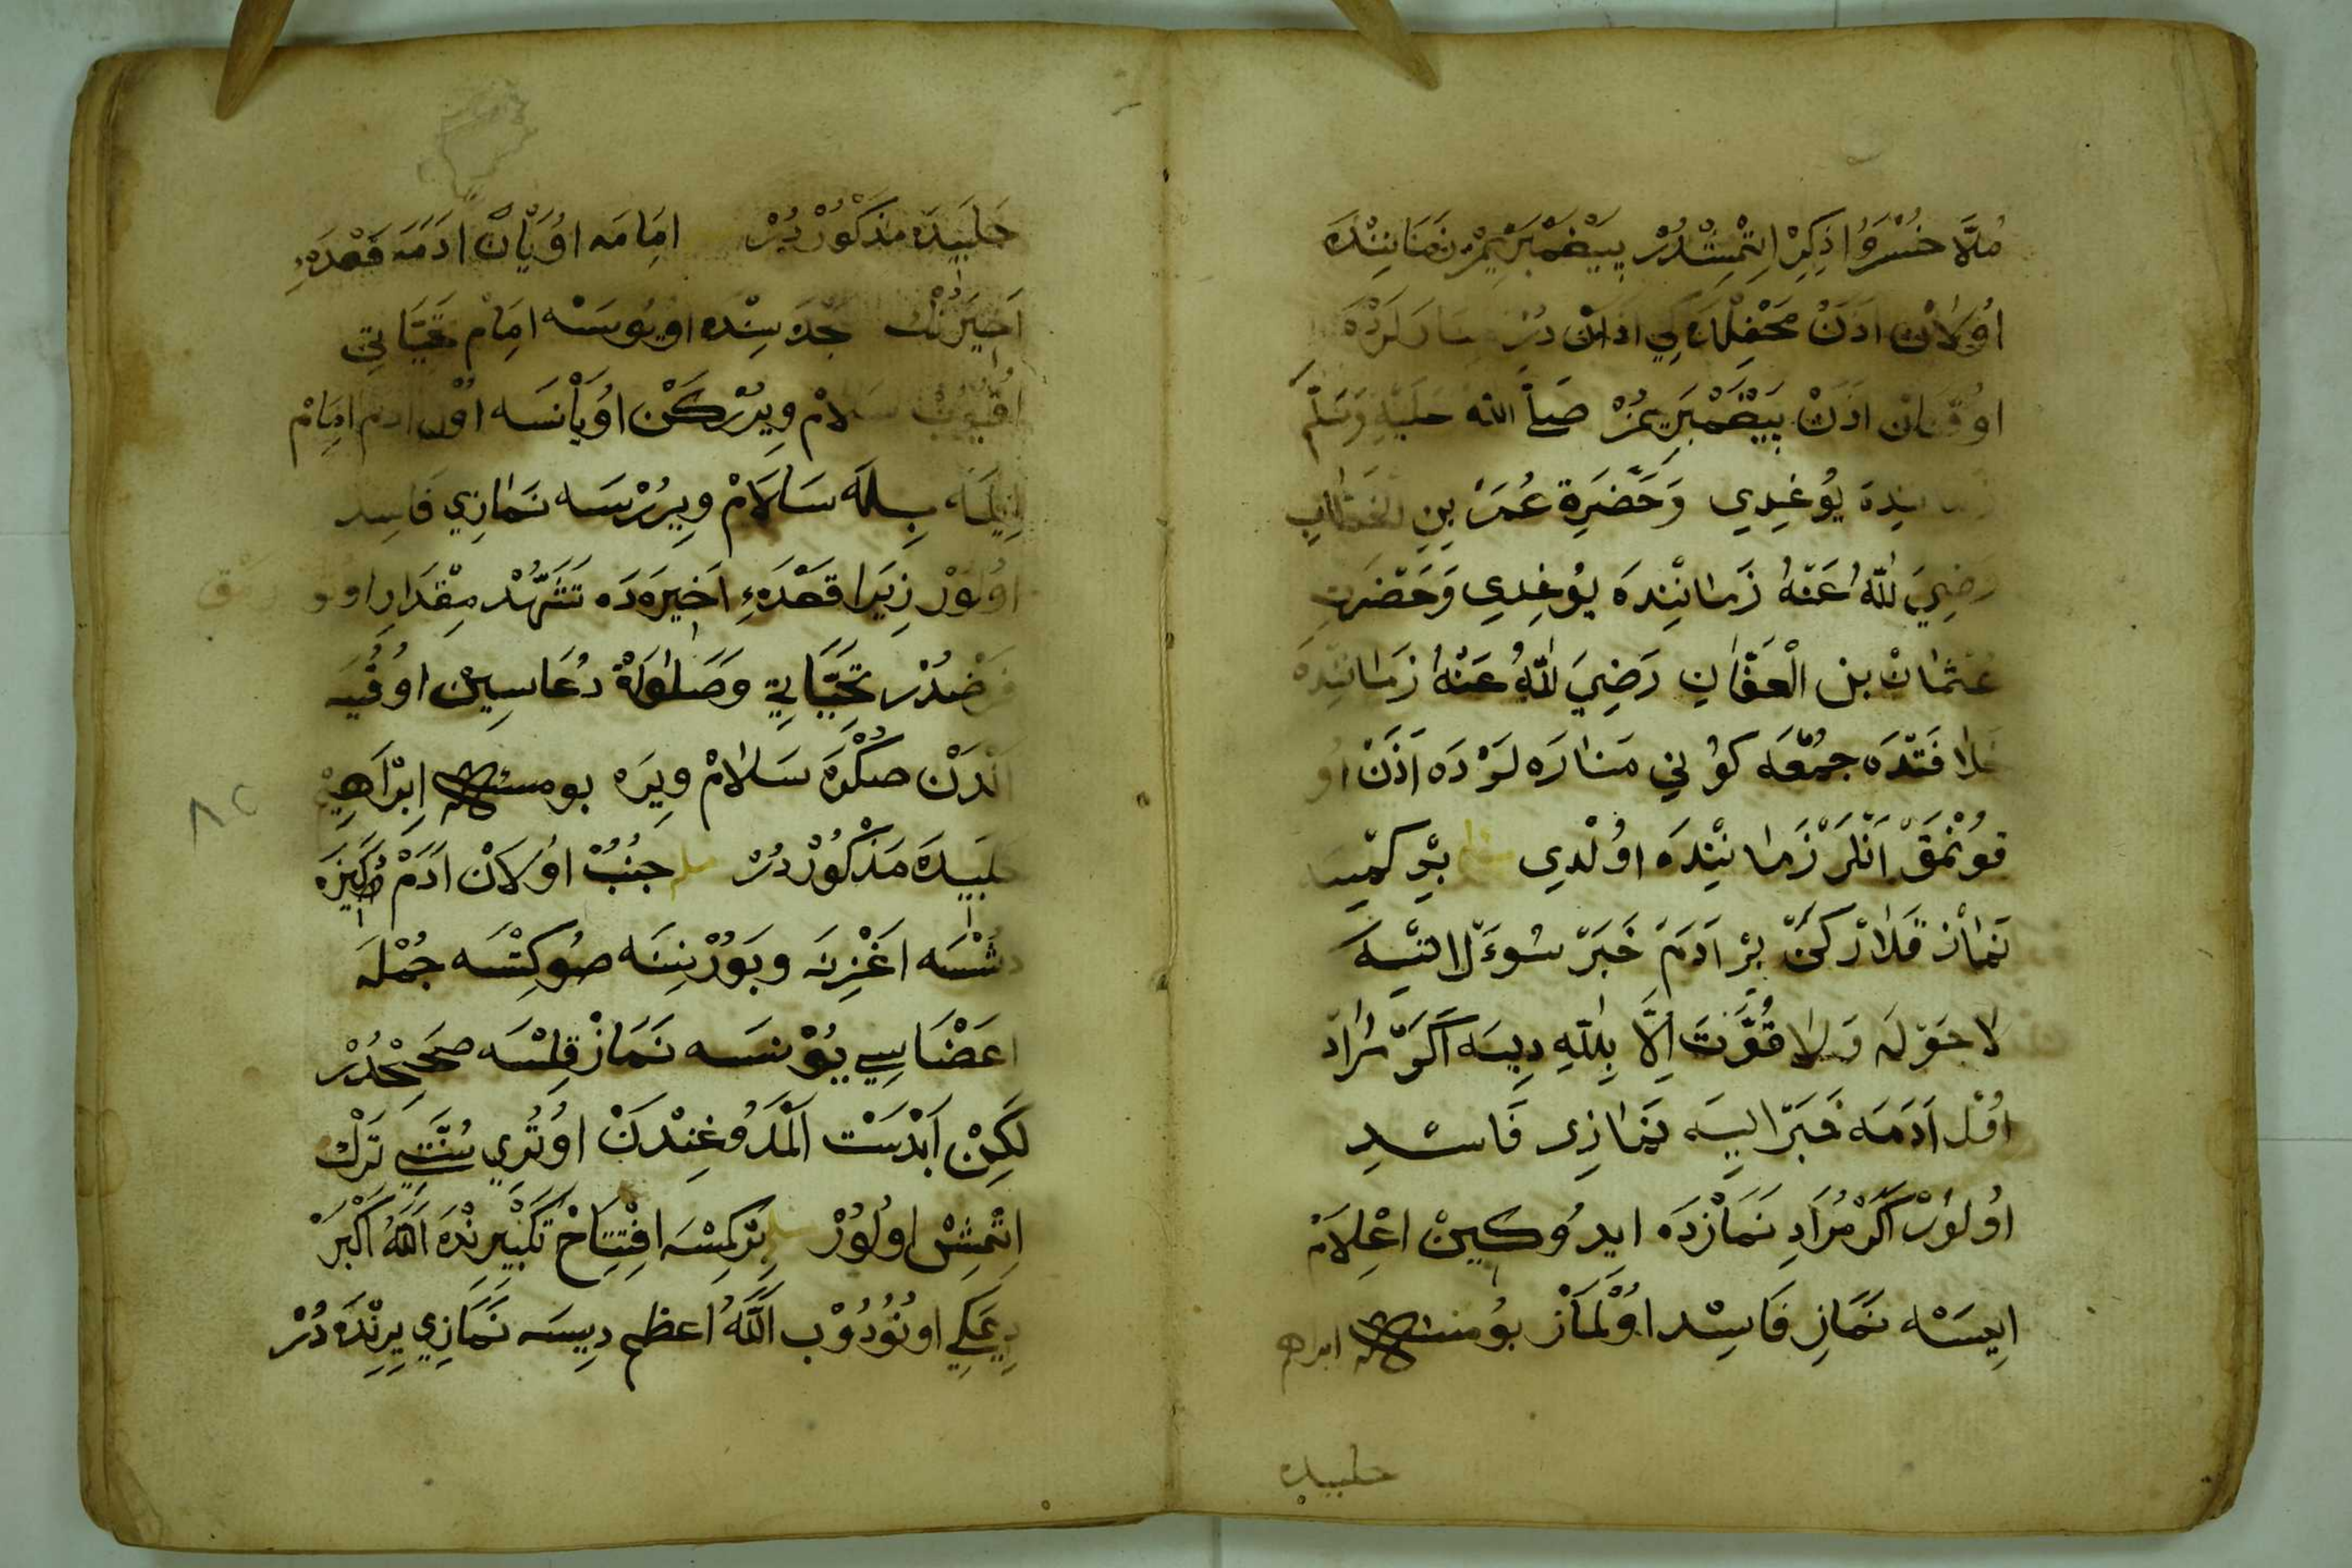 مُلَّا خُسْرَوْا ذِكِرْ اِتْمِشْدُرْ پَيْغَمْبَرِيمُزْ زَمَانِنْدَه
اُولَانْ اَذَنْ مَحْفِلْدَكِي اَذَانْ دُرْ لَرْدَه
اوُقُنَانْ اَذَنْ پَيْغَمْبَرِيمُزْ صَلَّ اللّٰه عَلَيْهِ وَسَلَّمْ
نِنْدَه يُوغِيدِي وَحَضْرَةِ عُمَرَ بِنِ الخَطَّابِ
رَضِيَ للّٰهُ عَنْهُ زَمَانِنْدَه يُوغِيدِي وَحَضْرَتِ
عُثْمَانْ بن الْعَفَّانِ رَضِيَ للّٰهُ عَنْهُ زَمَانِنْدَه
خَلَافَتْدَه جُمْعَه كُونِي مَنَارَه لَرْدَه اَذَنْ اُو
قُونْمَقْ اَنْلَرْ زَمَانِنْدَه اوُلْدِي بِرْ كِمْسَه
نَمَازْ قِلَارْكَنْ بِرْ اَدَمْ خَبَرْ سُوءَلْ اتْسَه
لَا حَوْلَه وَلَا قُوَّتَ اِلَّا بِللّٰهِ دِيسَه اَكَرْ مُرَادِ
اُوْل اَدَمَه خَبَرْ ايسَه نَمَازِى فَاسِدِ
اُولُوْر اَكَرْ مُرَادِ نَمَازْدَه ايدُوكِينْ اعْلَامْ
اِيسَه نَمَازِ فَاسِدْ اوُلْمَازْ بُو مسئله ابراهم
حلبيده
حَلَبِيدَه مَذكُوْرْ دُرْ اِمَامَه اوُيَانْ اَدَمَه قَعْدَهءِ
اَخِيرَنِكْ جْدَه سِنْدَه اوُيُوسَه امَام تَحِيَّاتِى
اُقُيُوبْ سَلَامْ وِيرُرْكَنْ اوُيَانْسَه اوُل ادَم امَامْ
اِيلَه بِلَه سَلَامْ وِيرُرْسَه نَمَازِي فَاسِد
اوُلوُرْ زِيرَا قَعْدَهءِ اَخِيرَه دَه تَشَهُّدْ مِقْدَارِ اوُتو رمَق
فَرْضْدُرْ تَحِيَّاتِي وَصَلَوَاةْ دُعَاسِينْ اوُقُيَه
اَنْدَنْ صُكْرَه سَلَامْ وِيرَه بو مسئله اِبْرَاهِيمْ
حَلَبِيدَه مَذْكُوْرْ دُرْ جُنُبْ اوُلَانْ اَدَمْ دَكِيزَه
دُشْسَه اَغْزِنَه وبُوْرْنِنَه صُو كِتْسَه جُمْلَه
اعَضَاسِي يُوْنسَه نَمَازْ قِلْسَه صَحِيحْدُرْ
لَكِنْ اَبْدَسْت اَلْمَدُوغِنْدَنْ اوُتُرِي سُنَّتِي تَرْك
اِتْمِشْ اوُلُوْرْ بِرْ كِمْسَه افْتِتَاحْ تَكْبِيرِنْدَه اَللّٰهُ اَكْبَرْ
دِيمَكِي اونُوْدُوْب اَللّٰهُ اعظم دِيسَه نَمَازِي يِرِنْدَه دُرْ
٨٢